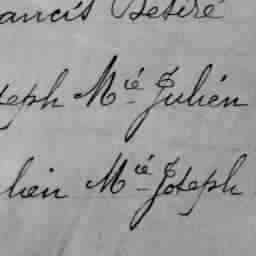 ancis Desiré
seph Mié Julién
lien Mié Joseph